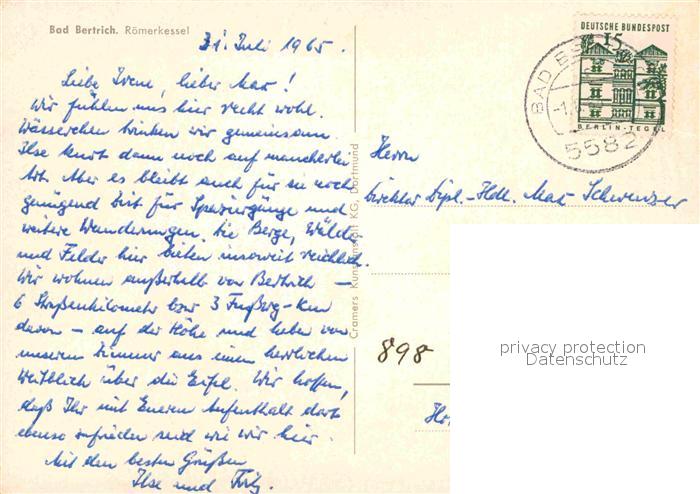 Bad Bertrich. Römerkessel
31. Juli 1965.
Liebe Irene, lieber Max!
Wir fühlen uns hier recht wohl.
Wässerchen trinken wir gemeinsam.
Ilse kurt dann noch auf mancherlei
Art. Aber es bleibt auch für sie noch
genügend Zeit für Spaziergänge und
weitere Wanderungen. Die Berge, Wälder
und Felder hier bieten insoweit reichlich.
Wir wohnen außerhalb von Bertrich –
6 Straßenkilometer bzw 3 Fußweg-Km
davon – auf der Höhe und haben von
unserem Zimmer aus einen herrlichen
Weitblick über die Eifel. Wir hoffen,
daß Ihr mit Euerem Aufenthalt dort
ebenso zufrieden seid wie wir hier.
Mit den besten Grüßen
Ilse und Fritz.
Cramers Kunstanstalt KG, Dortmund
DEUTSCHE BUNDESPOST
15
BERLIN-TEGEL
BAD
5582
Herrn
Direktor Dipl.-Hdl. Max Schwenzer
898
privacy protection
Datenschutz